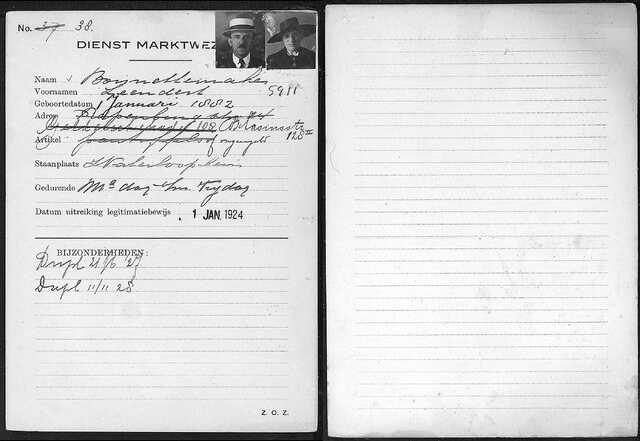 No. 37 38.
DIENST MARKTWEZ
Naam Boynettemaker
Voornamen Leendert 5911
Geboortedatum 1 Januari 1882
Adres 84
102 Blasiusstr
Artikel 128 II ongeregeld
Staanplaats Waterlooplein
Gedurende Ma dag t/m Vrydag
Datum uitreiking legitimatiebewijs 1 JAN. 1924
BIJZONDERHEDEN:
Dupl 21/6 '27
Dupl 11/11 28
Z. O. Z.